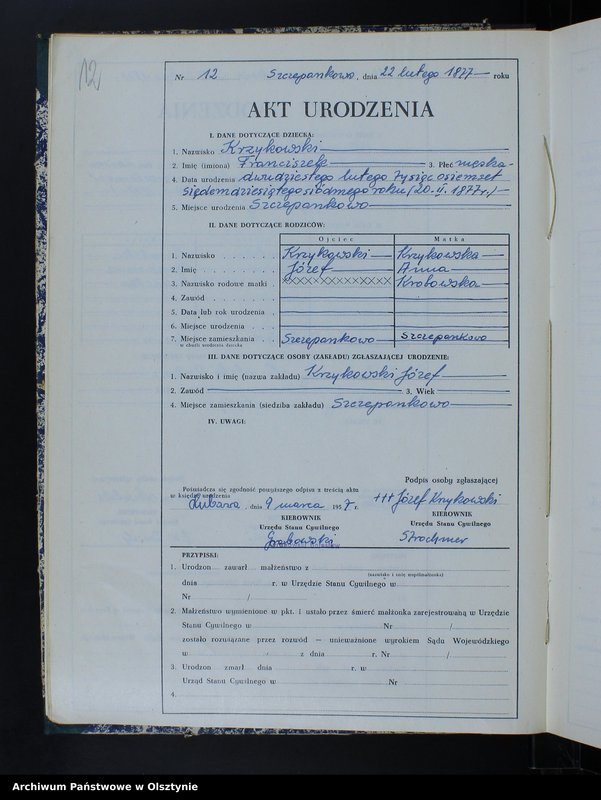 12
Nr 12 Szczepankowo, dnia 22 lutego 1877 roku
AKT URODZENIA
I. DANE DOTYCZĄCE DZIECKA:
1. Nazwisko Krzykowski
2. Imię (imiona) Franciszek 3. Płeć męska
4. Data urodzenia dwudziestego lutego tysiąc osiemset
siedemdziesiątego siódmego roku (20.II.1877r.)
5. Miejsce urodzenia Szczepankowo
II. DANE DOTYCZĄCE RODZICÓW:
Ojciec Matka
1. Nazwisko Krzykowski Krzykowska
2. Imię Józef Anna
3. Nazwisko rodowe matki xxxxxxxxxxxx Krobowska
4. Zawód
5. Data lub rok urodzenia
6. Miejsce urodzenia
7. Miejsce zamieszkania Szczepankowo Szczepankowo
w chwili urodzenia dziecka
III. DANE DOTYCZĄCE OSOBY (ZAKŁADU) ZGŁASZAJĄCEJ URODZENIE:
1. Nazwisko i imię (nazwa zakładu) Krzykowski Józef
2. Zawód 3. Wiek
4. Miejsce zamieszkania (siedziba zakładu) Szczepankowo
IV. UWAGI:
Podpis osoby zgłaszającej
Poświadcza się zgodność powyższego odpisu z treścią aktu
w księdze urodzenia
+++ Józef Krzykowski
Lubawa, dnia 9 marca 1957 r.
KIEROWNIK
Urzędu Stanu Cywilnego
KIEROWNIK
Urzędu Stanu Cywilnego
Grabowski
Strochmer
PRZYPISKI:
1. Urodzon zawarł małżeństwo z
(nazwisko i imię współmałżonka)
dnia r. w Urzędzie Stanu Cywilnego w
Nr /
2. Małżeństwo wymienione w pkt. 1 ustało przez śmierć małżonka zarejestrowaną w Urzędzie
Stanu Cywilnego w Nr /
zostało rozwiązane przez rozwód — unieważnione wyrokiem Sądu Wojewódzkiego
w z dnia r. Nr /
3. Urodzon zmarł dnia r. w
Urząd Stanu Cywilnego w Nr
4.
Archiwum Państwowe w Olsztynie